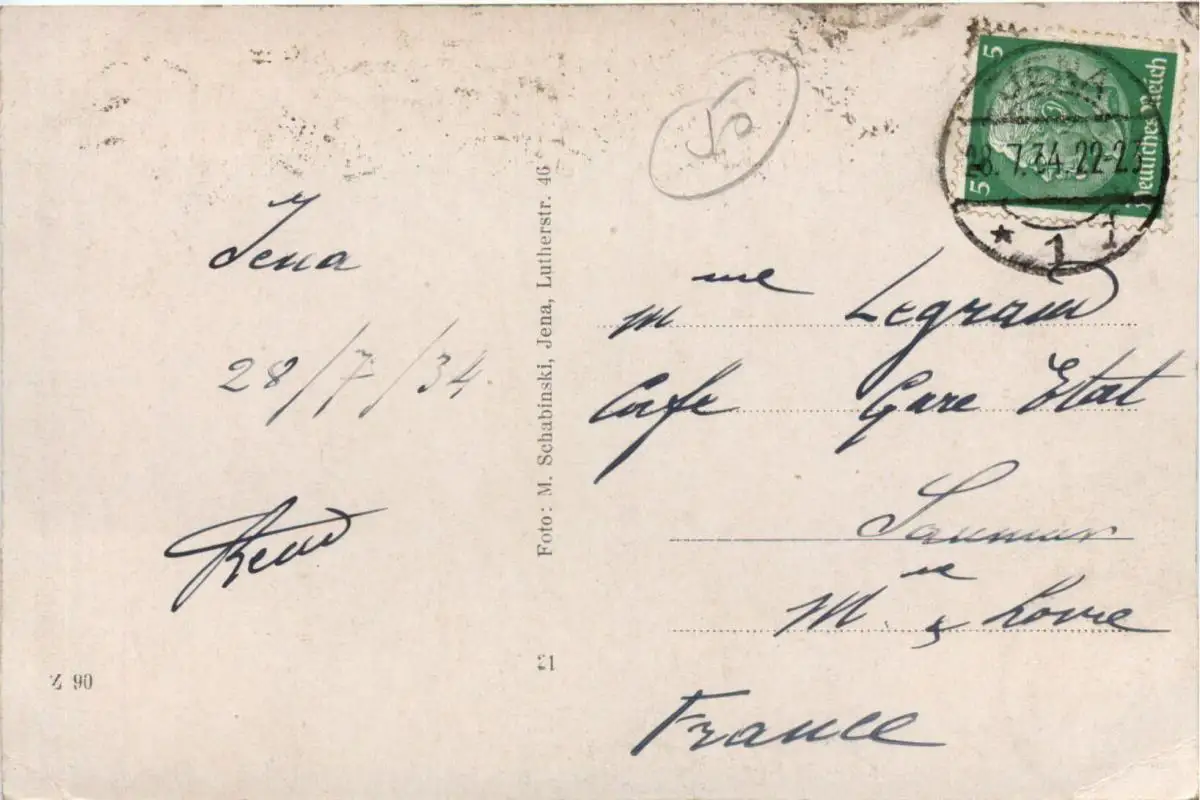 Jena
28/7/34.
René
Z 90
Foto: M. Schabinski, Jena, Lutherstr. 46
21
5
5
5
Deutsches Reich
JENA
28.7.34.22-23
* 1 1
Mme Legrand
Cafe Gare Etat
Saumur
M. et Loire
France